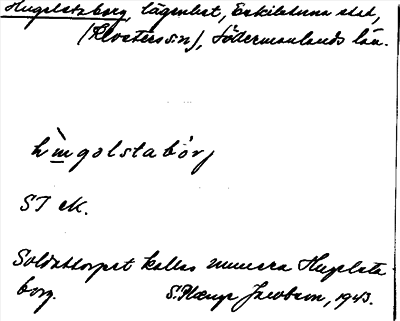 Hugelstaborg, lägenhet, Eskilstuna stad,
(Klosters sn), Södermanlands län.
STM.
Soldattorpet kallas numera Hugelsta-
borg. S. Plænge Jacobson, 1943.